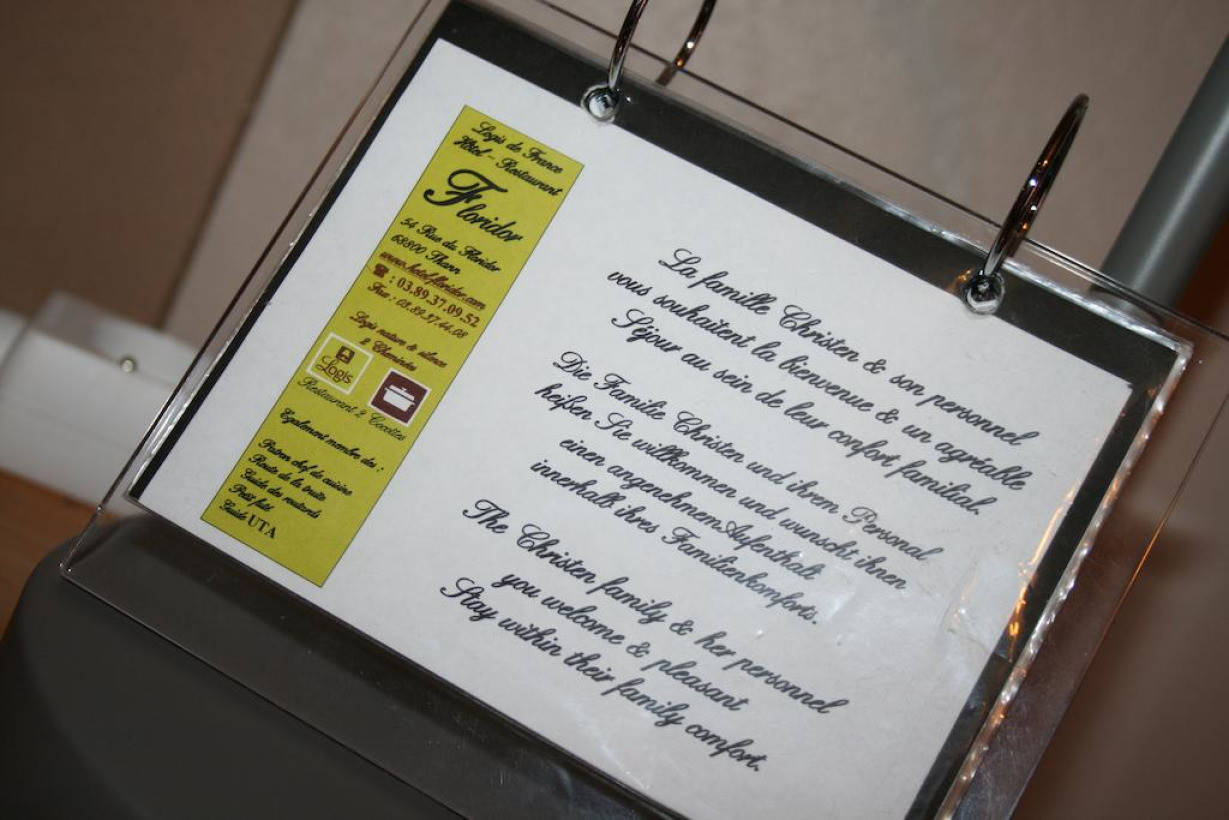 Logis de France
Hôtel - Restaurant
Floridor
54 Rue du Floridor
68800 Thann
www.hotel-floridor.com
☎ : 03.89.37.09.52
Fax : 03.89.37.44.08
Logis nature & silence
2 Cheminées
Logis
Restaurant 2 Cocottes
Egalement membre des :
Patron chef de cuisine
Route de la truite
Guide des motards
Petit futé
Guide UTA
La famille Christen & son personnel
vous souhaitent la bienvenue & un agréable
Séjour au sein de leur confort familial.
Die Familie Christen und ihrem Personal
heißen Sie willkommen und wunscht ihnen
einen angenehmem Aufenthalt
innerhalb ihres Familienkomforts.
The Christen family & her personnel
you welcome & pleasant
Stay within their family comfort.